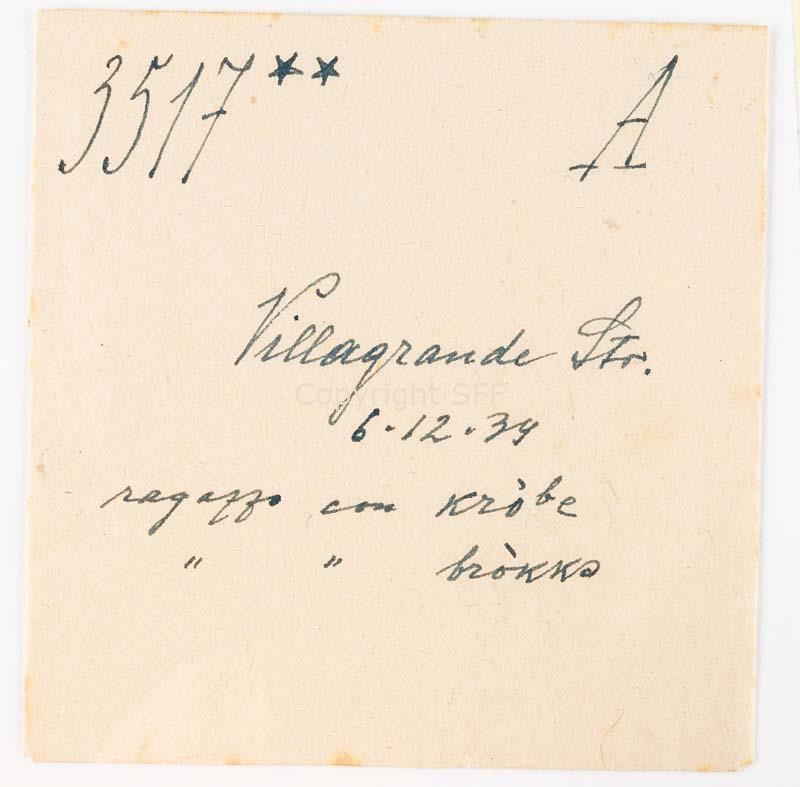 3517** A
Villagrande Str.
Copyright SFF
6.12.34
ragazzo con kròbe
" " bròkks